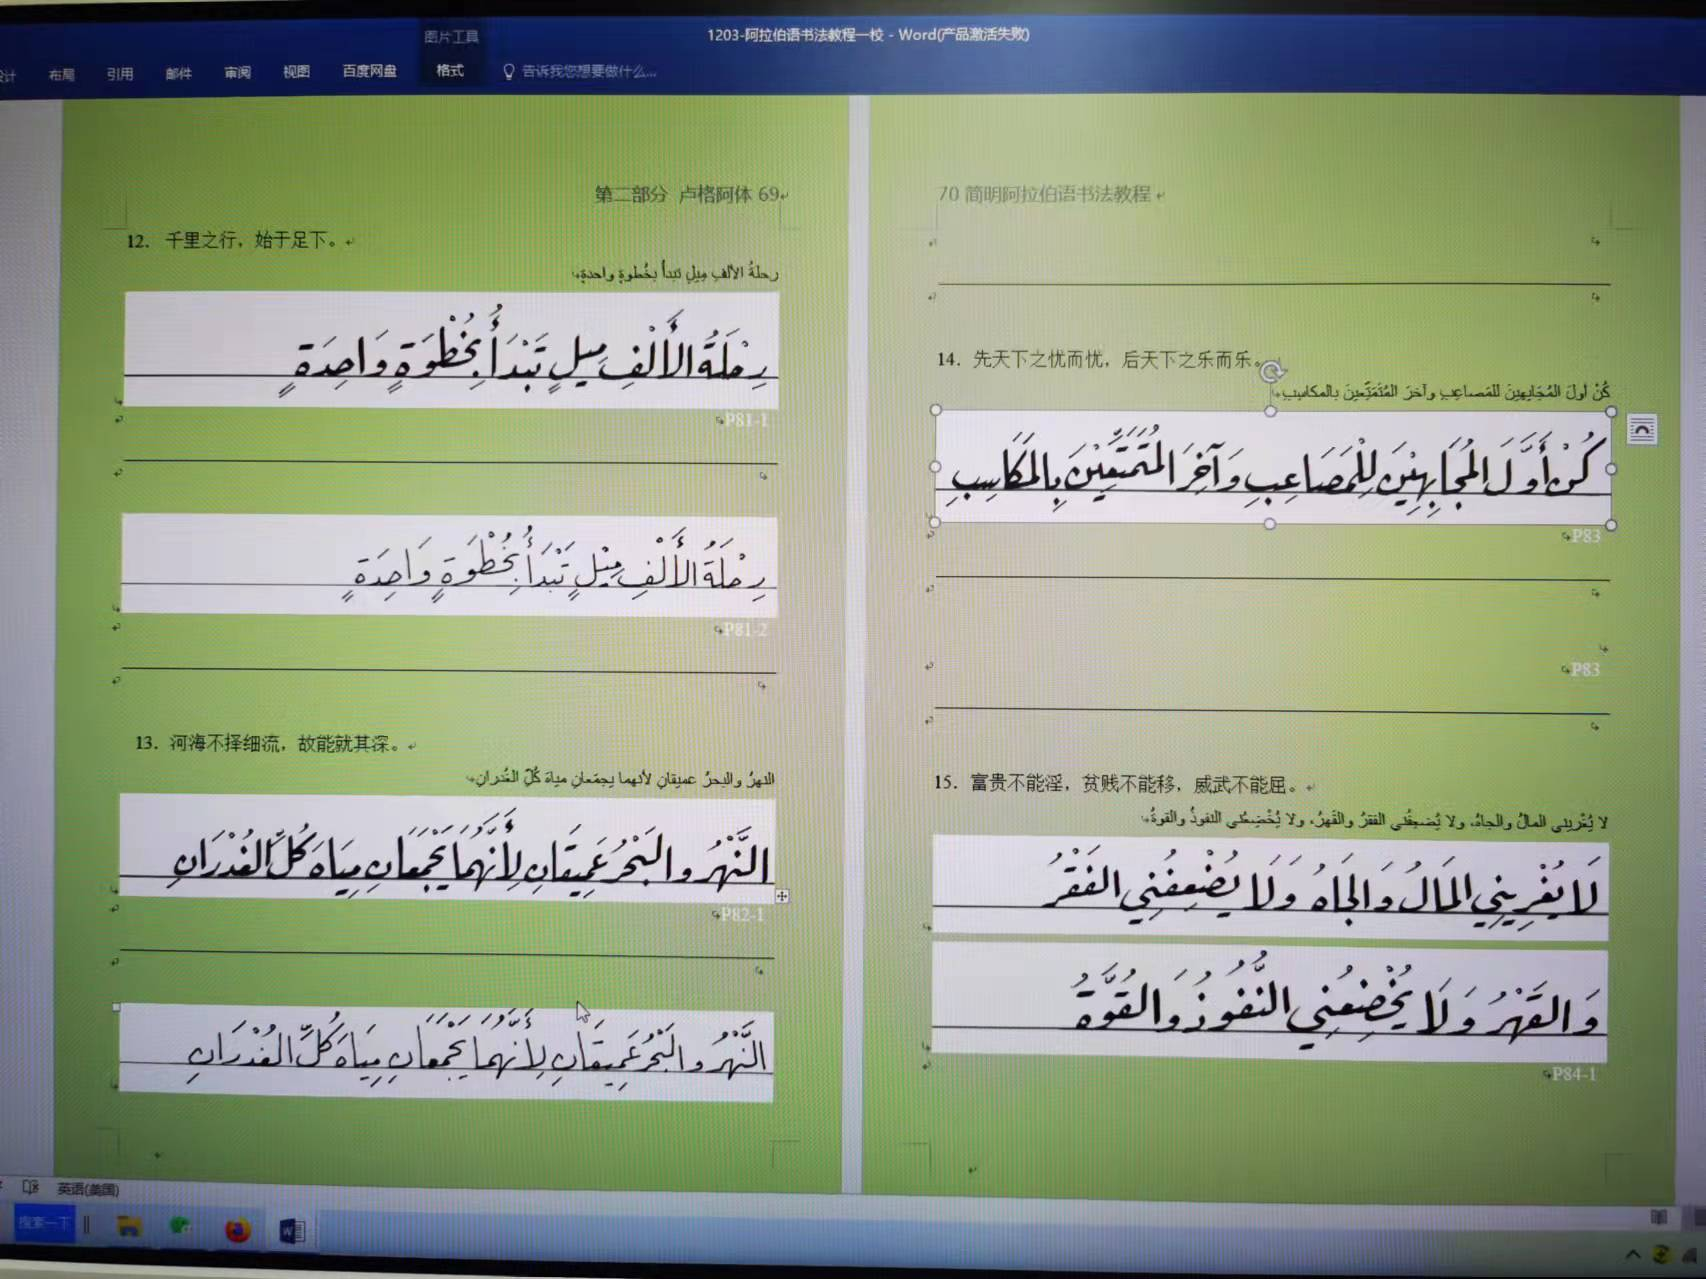 图片工具
1203-阿拉伯语书法教程一校 - Word(产品激活失败)
布局 引用 邮件 审阅 视图 百度网盘 格式 告诉我您想要做什么...
第二部分 卢格阿体 69
12. 千里之行，始于足下。
رحلةُ الألفِ مِيلٍ تبدأ بخُطوةٍ واحدةٍ
رِحْلَةُ الأَلْفِ مِيلٍ تَبْدَأُ بِخُطْوَةٍ وَاحِدَةٍ
P81-1
رِحْلَةُ الأَلْفِ مِيْلٍ تَبْدَأُ بِخُطْوَةٍ وَاحِدَةٍ
P81-2
13. 河海不择细流，故能就其深。
النهرُ والبحرُ عميقانِ لأنهما يجمَعانِ مياهَ كُلّ الغُدرانِ
النَّهْرُ والبَحْرُ عَمِيقَانِ لِأَنَّهُمَا يَجْمَعَانِ مِيَاهَ كُلِّ الغُدْرَانِ
P82-1
النَّهْرُ والبَحْرُ عَمِيقَانِ لِأَنَّهُمَا يَجْمَعَانِ مِيَاهَ كُلِّ الغُدْرَانِ
70 简明阿拉伯语书法教程
14. 先天下之忧而忧，后天下之乐而乐。
كُنْ أولَ المُجَابِهِينَ للمَصاعِبِ وآخرَ المُتَمَتِّعينَ بالمكاسِبِ
كُنْ أَوَّلَ المُجَابِهِيْنَ لِلْمَصَاعِبِ وَآخِرَ المُتَمَتِّعِيْنَ بِالمَكَاسِبِ
P83
P83
15. 富贵不能淫，贫贱不能移，威武不能屈。
لا يُغْريني المالُ والجاهُ، ولا يُضعِفُني الفقرُ والقَهرُ، ولا يُخْضِعُني النفوذُ والقوةُ
لَا يُغْرِيْنِي المَالُ وَالجَاهُ وَلَا يُضْعِفُنِي الفَقْرُ
وَالقَهْرُ وَلَا يُخْضِعُنِي النُّفُوذُ وَالقُوَّةُ
P84-1
英语(美国)
搜索一下